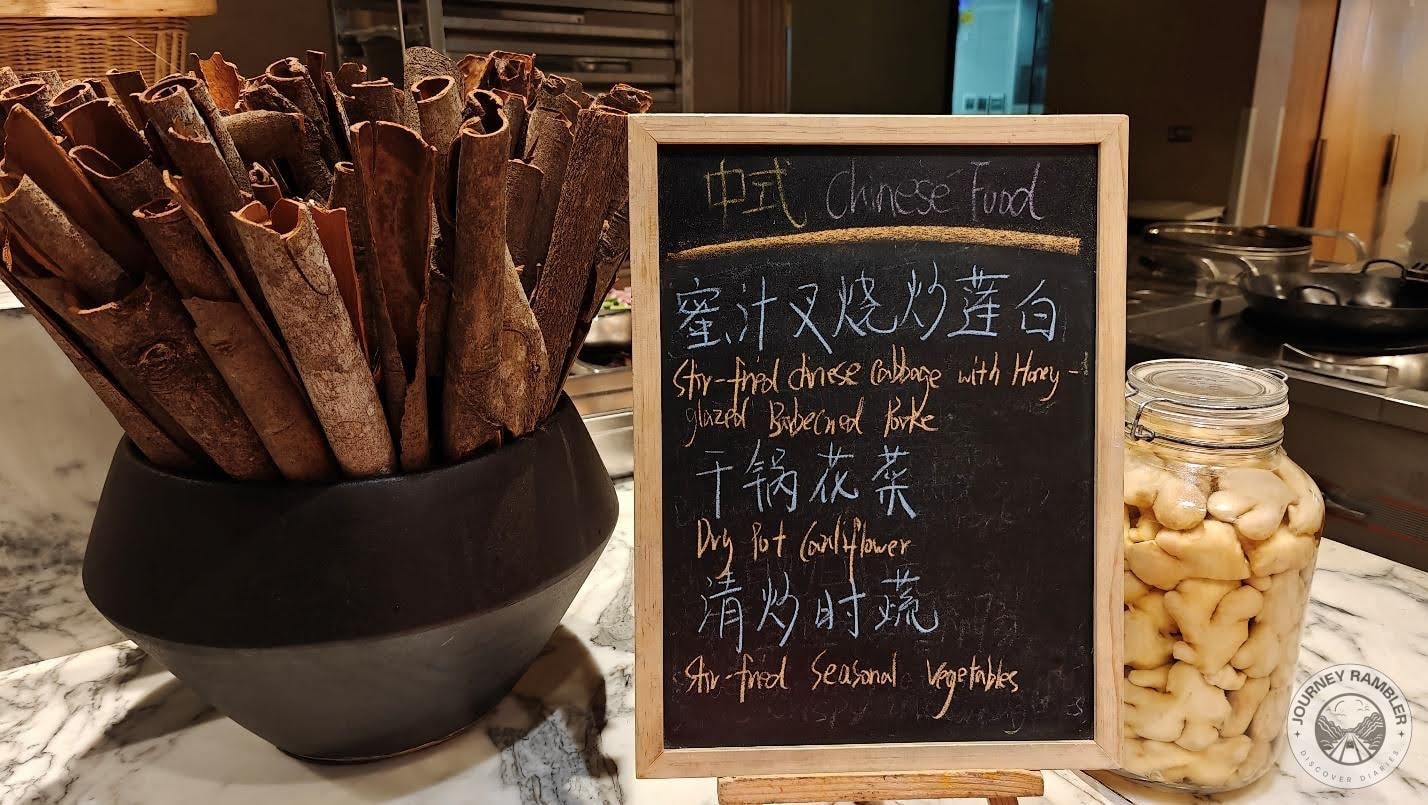 中式 Chinese Food
蜜汁叉烧炒莲白
Stir-fried chinese Cabbage with Honey-
glazed Babecned Porke
干锅花菜
Dry Pot Cauliflower
清炒时蔬
Stir-fried Seasonal Vegetables
JOURNEY RAMBLER
DISCOVER DIARIES